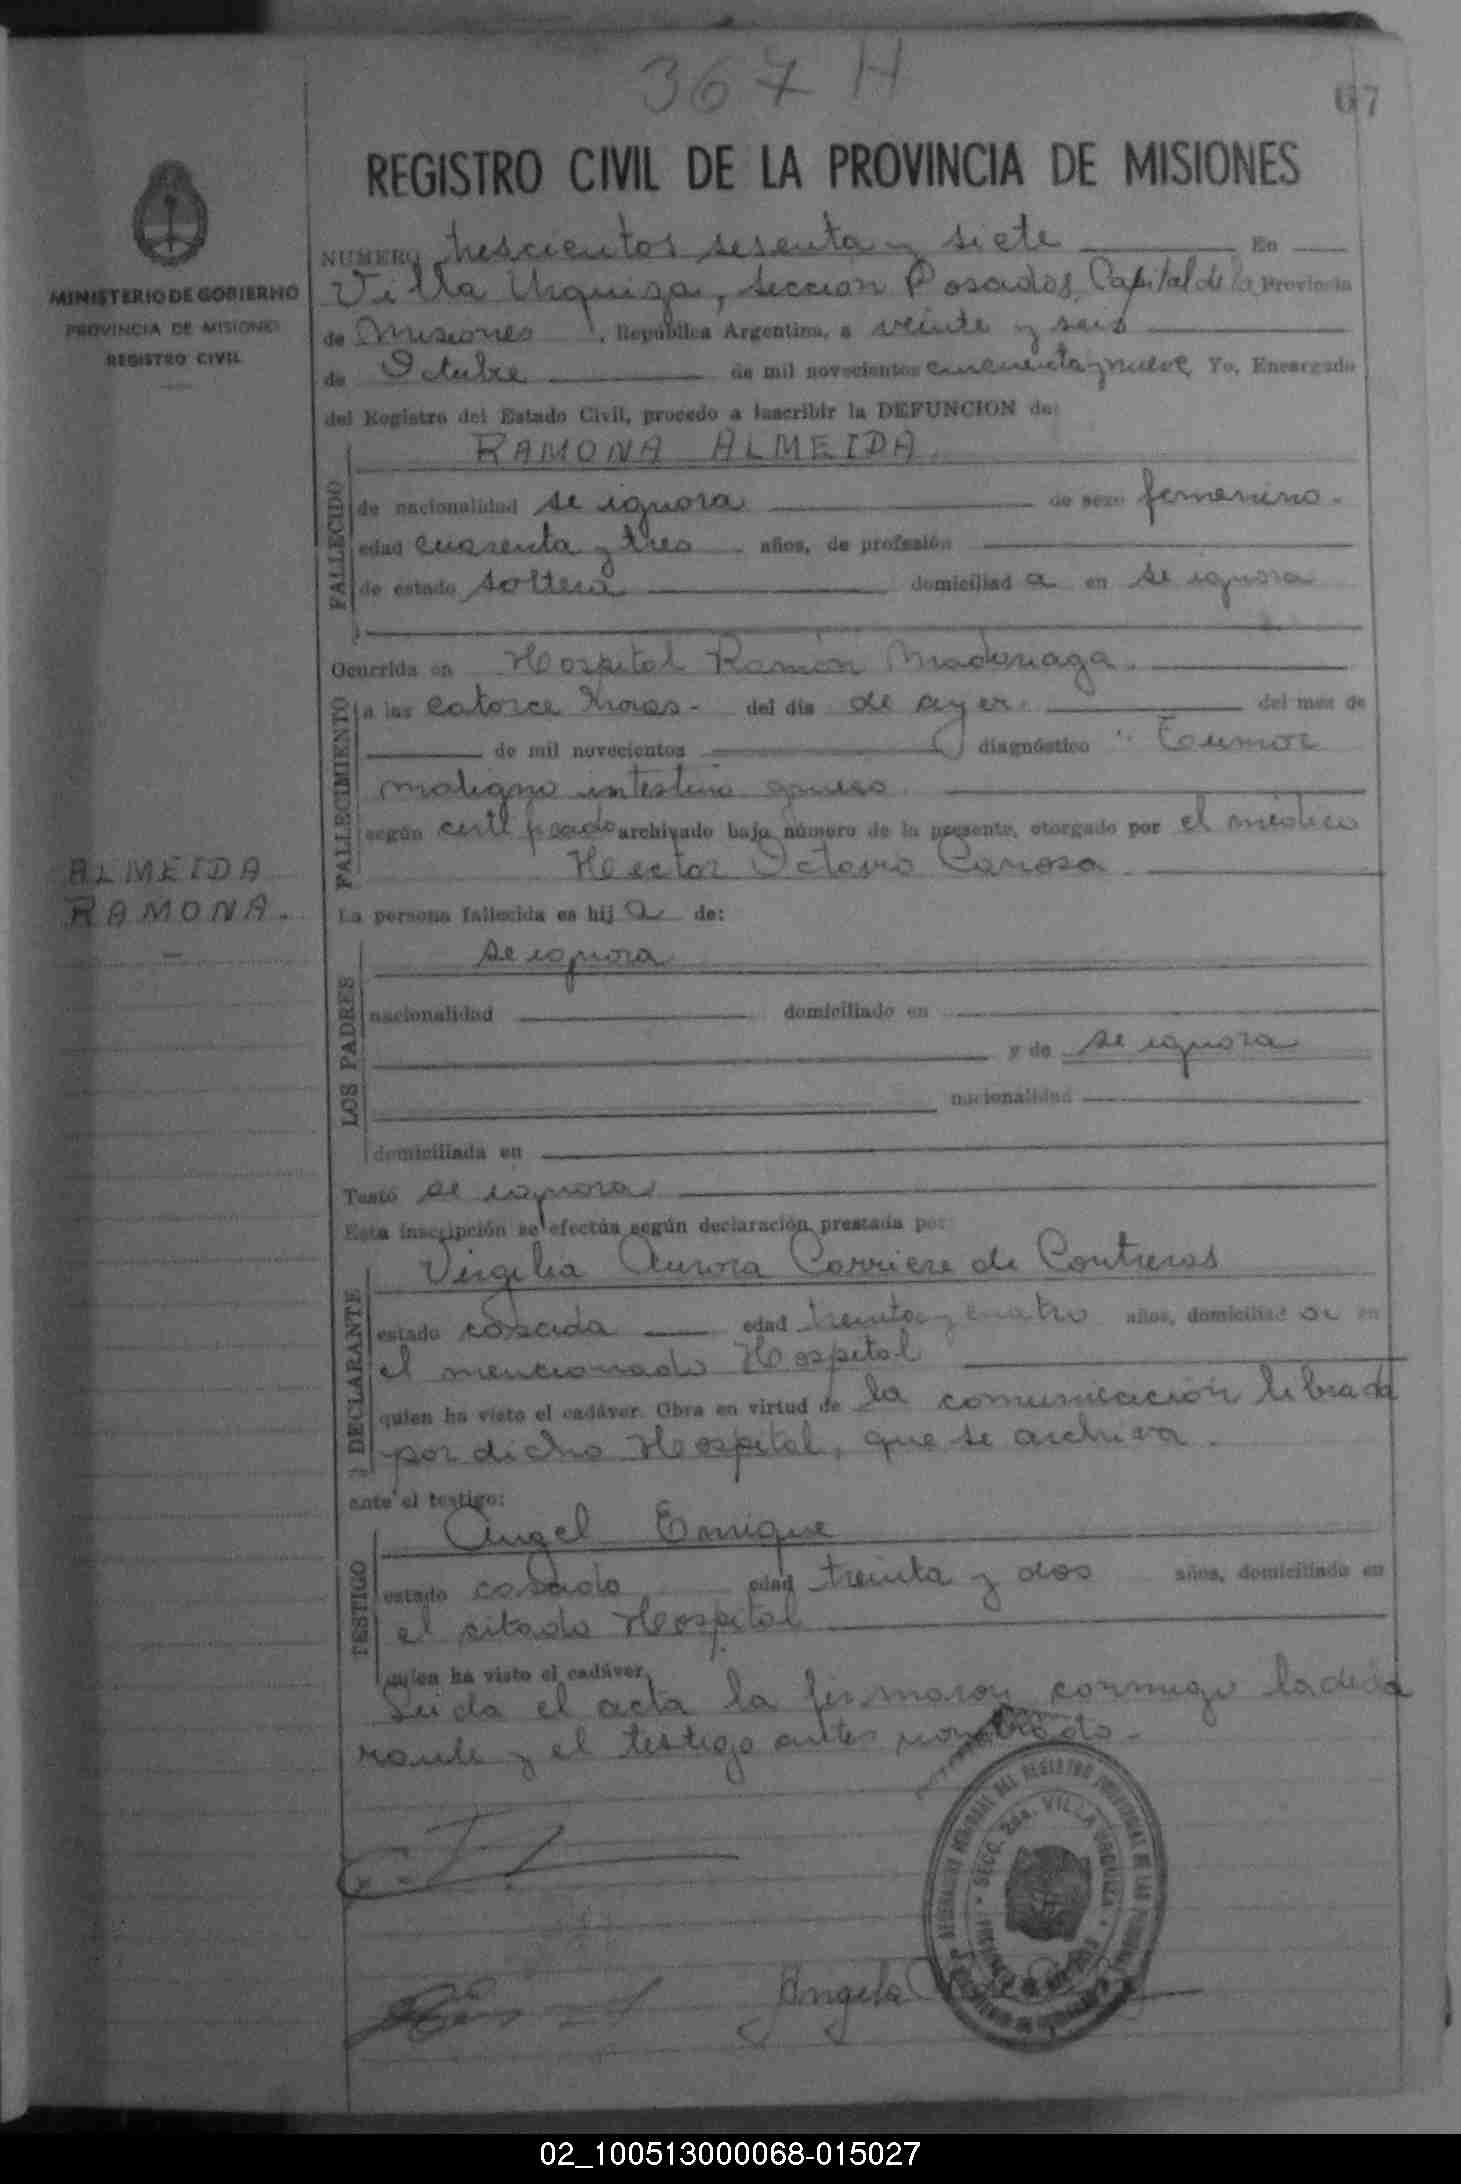 367 H
67
REGISTRO CIVIL DE LA PROVINCIA DE MISIONES
MINISTERIO DE GOBIERNO
PROVINCIA DE MISIONES
REGISTRO CIVIL
NUMERO trescientos sesenta y siete En
Villa Urquiza, seccion Posadas, Capital de la Provincia
de Misiones, República Argentina, a veinte y seis
de Octubre de mil novecientos cincuenta y nueve Yo, Encargado
del Registro del Estado Civil, procedo a inscribir la DEFUNCION de:
RAMONA ALMEIDA
FALLECIDO
de nacionalidad se ignora de sexo femenino.
edad cuarenta y tres años, de profesión
de estado soltera domiciliad a en se ignora
Ocurrida en Hospital Ramón Madariaga.
FALLECIMIENTO
a las catorce horas- del día de ayer. del mes de
de mil novecientos diagnóstico: Tumor
maligno intestino grueso
según certificado archivado bajo número de la presente, otorgado por el médico
Hector Octavio Canosa.
ALMEIDA
RAMONA.
La persona fallecida es hij a de:
LOS PADRES
se ignora
nacionalidad domiciliado en
y de se ignora
nacionalidad
domiciliada en
Testó se ignora
Esta inscripción se efectúa según declaración prestada por:
DECLARANTE
Virgilia Aurora Carriere de Contreras
estado casada edad treinta y cuatro años, domiciliad a en
el mencionado Hospital
quien ha visto el cadáver. Obra en virtud de la comunicación librada
por dicho Hospital, que se archiva.
ante el testigo:
TESTIGO
Angel Enrique
estado casado edad treinta y dos años, domiciliado en
el sitado Hospital
quien ha visto el cadáver.
Leida el acta la firmaron conmigo la decla
rante y el testigo antes nombrado.-
SECC. 2da. VILLA URQUIZA
Angela
02_100513000068-015027